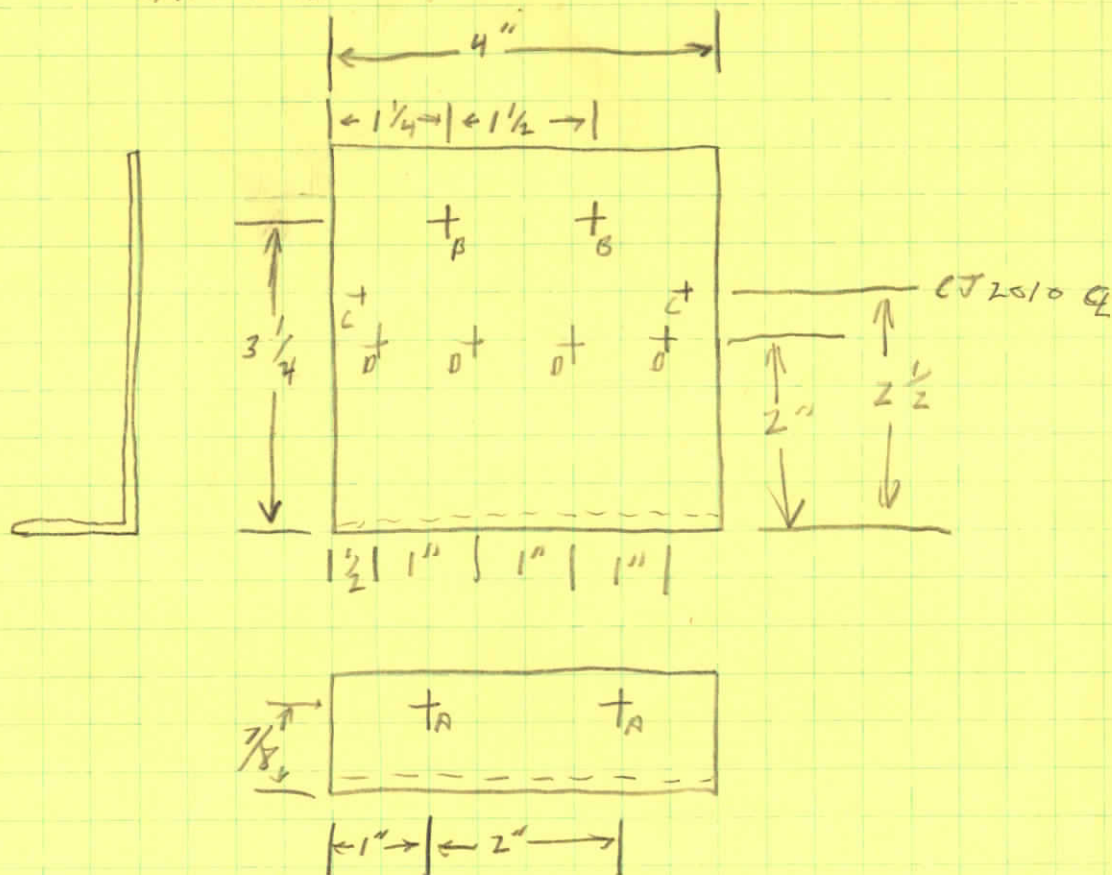 4"
1 1/4 1 1/2
B B
C C CJ2010 ℄
3 1/4
D D D D
2" 2 1/2
1/2 1" 1" 1"
A A
7/8
1" 2"